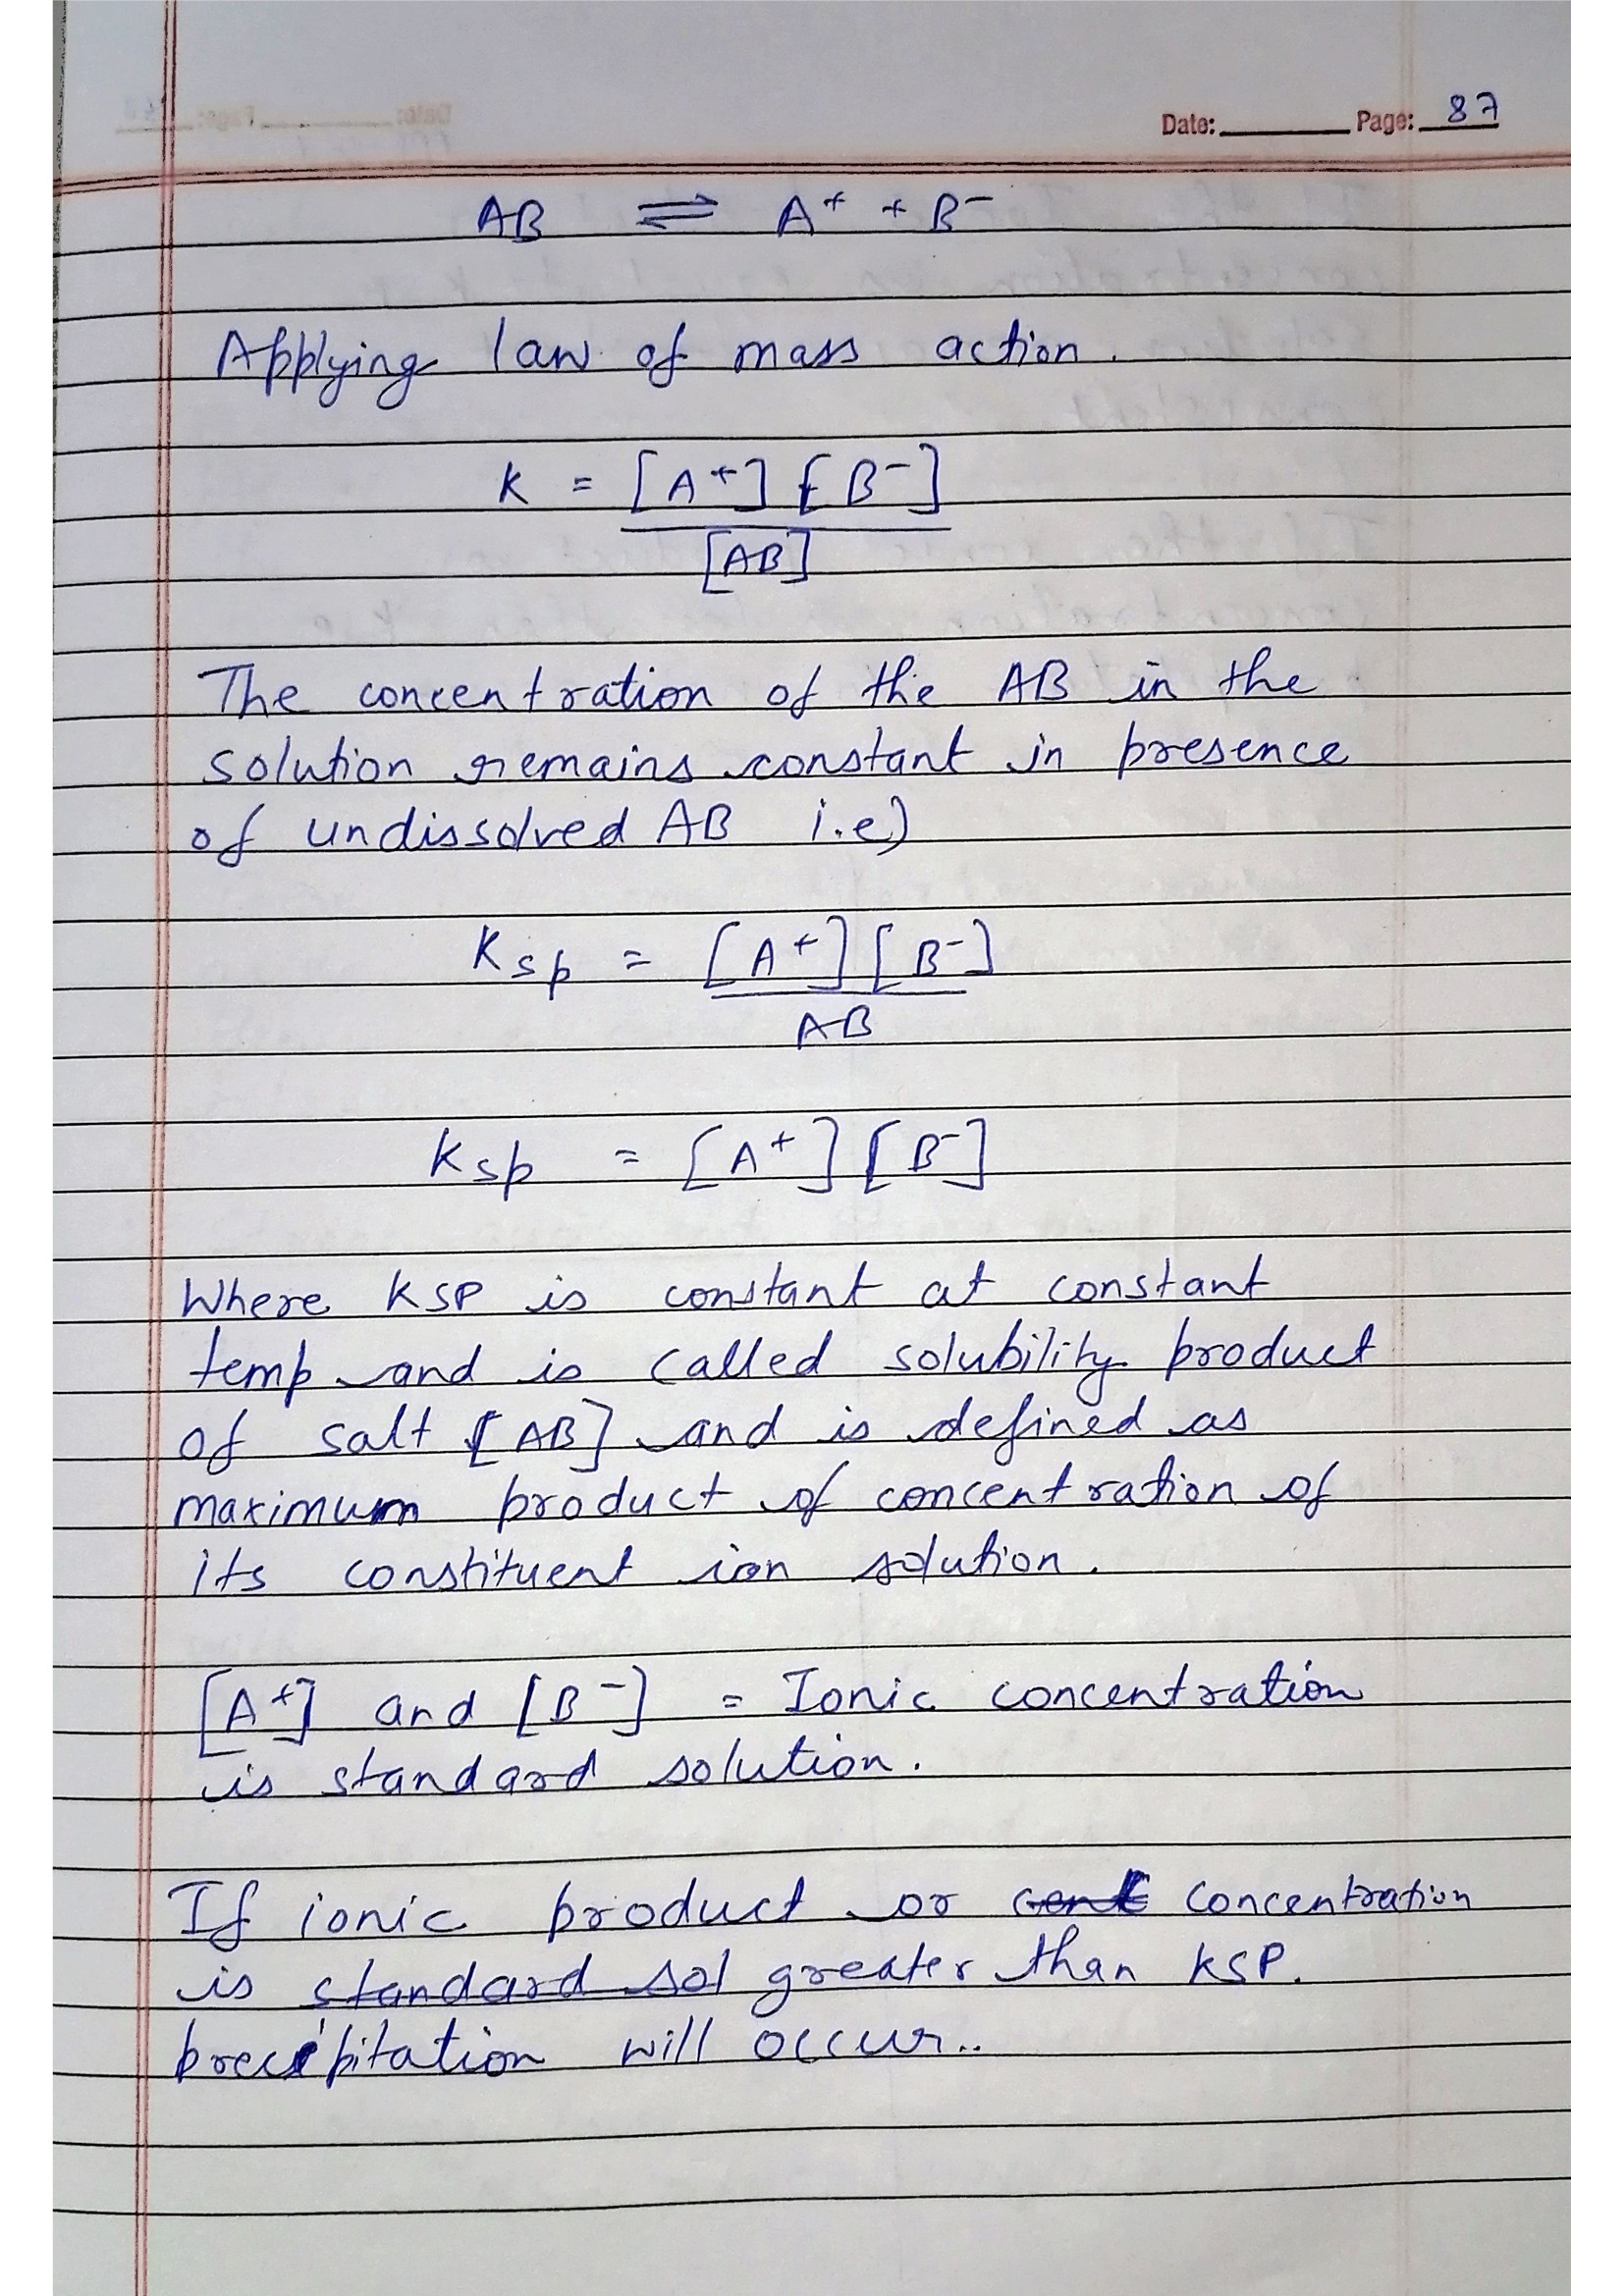 Date: Page: 87
AB ⇌ A⁺ + B⁻
Applying law of mass action.
K = [A⁺] [B⁻]
[AB]
The concentration of the AB in the
solution remains constant in presence
of undissolved AB i.e)
Ksp = [A⁺] [B⁻]
AB
Ksp = [A⁺] [B⁻]
Where KSP is constant at constant
temp and is called solubility product
of salt [AB] and is defined as
maximum product of concentration of
its constituent ion solution.
[A⁺] and [B⁻] = Ionic concentration
is standard solution.
If ionic product or concentration
is standard sol greater than KSP.
precipitation will occur..